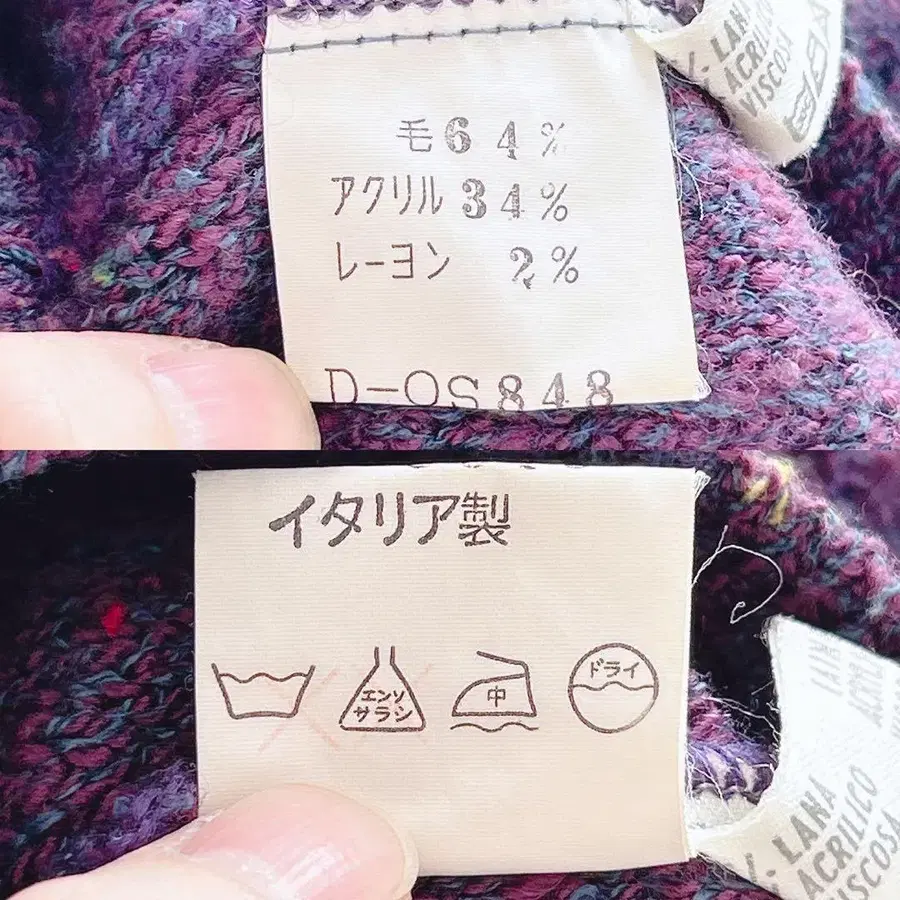 毛64%
アクリル34%
レーヨン 2%
D-OS848
LANA
ACRILICO
VISCOSA
イタリア製
エンソ
サラシ
中
ドライ
LANA
ACRILICO
VISCOSA